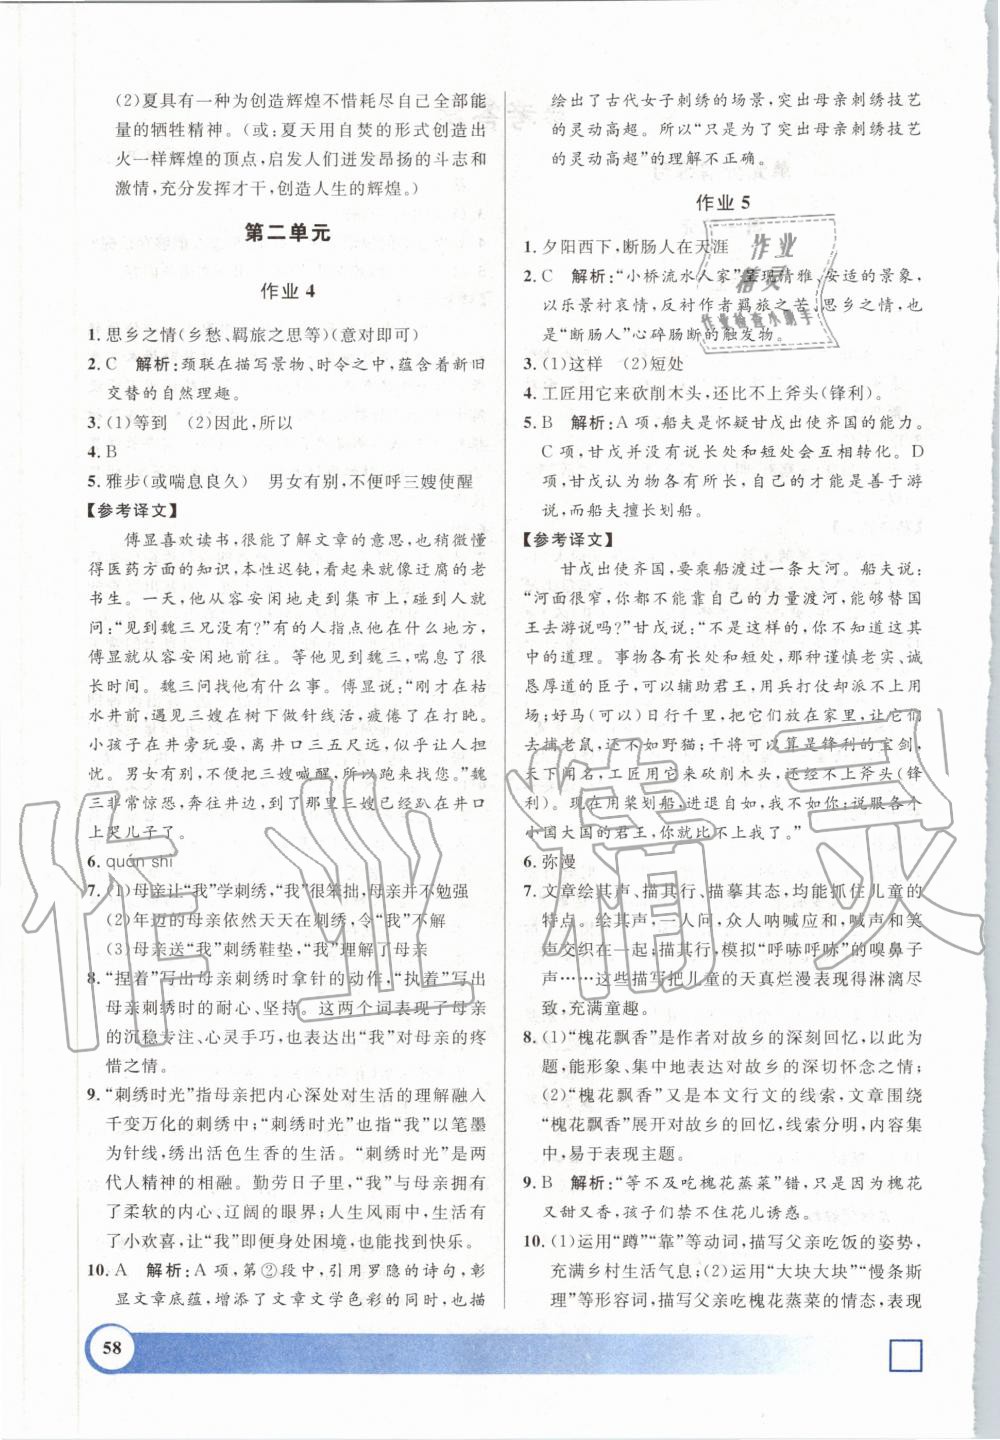 (2)夏具有一种为创造辉煌不惜耗尽自己全部能
量的牺牲精神。(或:夏天用自焚的形式创造出
火一样辉煌的顶点,启发人们迸发昂扬的斗志和
激情,充分发挥才干,创造人生的辉煌。)
第二单元
作业 4
1. 思乡之情(乡愁、羁旅之思等)(意对即可)
2. C 解析:颈联在描写景物、时令之中,蕴含着新旧
交替的自然理趣。
3. (1)等到 (2)因此,所以
4. B
5. 雅步(或喘息良久) 男女有别,不便呼三嫂使醒
【参考译文】
傅显喜欢读书,很能了解文章的意思,也稍微懂
得医药方面的知识,本性迟钝,看起来就像迂腐的老
书生。一天,他从容安闲地走到集市上,碰到人就
问:“见到魏三兄没有?”有的人指点他在什么地方,
傅显就从容安闲地前往。等见到魏三,喘息了很
长时间。魏三问找他有什么事。傅显说:“刚才在枯
水井前,遇见三嫂在树下做针线活,疲倦了在打盹。
小孩子在井旁玩耍,离井口三五尺远,似乎让人担
忧。男女有别,不便把三嫂喊醒,所以跑来找您。”魏
三非常惊恐,奔往井边,到了那里三嫂已经趴在井口
上哭儿子了。
6. quán shì
7. (1)母亲让“我”学刺绣,“我”很笨拙,母亲并不勉强
(2)年迈的母亲依然天天在刺绣,令“我”不解
(3)母亲送“我”刺绣鞋垫,“我”理解了母亲
8. “捏着”写出母亲刺绣时拿针的动作,“执着”写出
母亲刺绣时的耐心、坚持。这两个词表现了母亲
的沉稳专注、心灵手巧,也表达出“我”对母亲的疼
惜之情。
9. “刺绣时光”指母亲把内心深处对生活的理解融入
千变万化的刺绣中;“刺绣时光”也指“我”以笔墨
为针线,绣出活色生香的生活。“刺绣时光”是两
代人精神的相融。勤劳日子里,我们对生活拥有
了柔软的内心、辽阔的眼界;人生风雨中,生活有
了小欢喜,让“我”即便身处困境,也依然豁达快乐。
10. A 解析:A 项,第②段中,引用罗隐的诗句,彰
显文章底蕴,增添了文章文学色彩的同时,也描
绘出了古代女子刺绣的场景,突出母亲刺绣技艺
的灵动高超。所以“只是为了突出母亲刺绣技艺
的灵动高超”的理解不正确。
作业 5
1. 夕阳西下,断肠人在天涯
2. C 解析:“小桥流水人家”呈现清雅、安适的景象,
以乐景衬哀情,反衬作者羁旅之苦、思乡之情,也
是“断肠人”心碎肠断的触发物。
3. (1)这样 (2)短处
4. 工匠用它来砍削木头,还比不上斧头(锋利)。
5. B 解析:A 项,船夫是怀疑甘戊出使齐国的能力。
C 项,甘戊并没有说长处和短处会互相转化。D
项,甘戊认为物各有所长,自己的才能是善于游
说,而船夫擅长划船。
【参考译文】
甘戊出使齐国,要乘船渡过一条大河。船夫说:
“河面很窄,你都不能靠自己的力量渡河,你能替国
王去游说吗?”甘戊说:“不是这样的,你不知道这其
中的道理。事物各有长处和短处,那种谨慎老实、诚
恳厚道的臣子,可以辅助君王,用兵打仗却派不上用
场;好马(可以)日行千里,把它们放在家里,让它们
去捕老鼠,还不如野猫;干将可以算是锋利的宝剑,
天下闻名,工匠用它来砍削木头,还比不上斧头(锋
利)。现在用桨划船,进退自如,我不如你;说服各个
小国大国的君王,你就比不上我了。”
6. 弥漫
7. 文章绘其声、描其行、描摹其态,均能抓住儿童的
特点。绘其声,一人问,众人呐喊应和,喊声和笑
声交织在一起;描其行,模拟“呼哧呼哧”的嗅鼻子
声……这些描写将儿童的天真烂漫表现得淋漓尽
致,充满童趣。
8. (1)“槐花飘香”是作者对故乡的深刻回忆,以此为
题,能形象、集中地表达对故乡的深切怀念之情;
(2)“槐花飘香”又是本文行文的线索,文章围绕
“槐花飘香”展开对故乡的回忆,线索分明,内容集
中,易于表现主题。
9. B 解析:“等不及吃槐花蒸菜”错,只是因为槐花
又甜又香,孩子们禁不住花儿诱惑。
10. (1)运用“蹲”“靠”等动词,描写父亲吃饭的姿势,
充满乡村生活气息;(2)运用“大块大块”“慢条斯
理”等形容词,描写父亲吃槐花蒸菜的情态,表现
58
作业
精灵
作业检查小助手
作业精灵